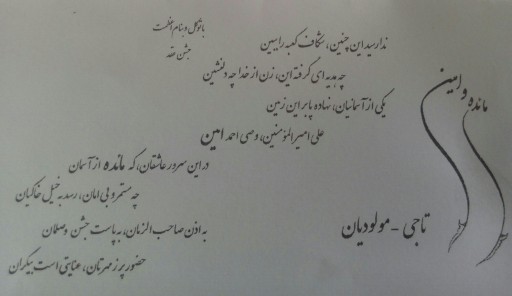 با توکل و به نام اعظمت
جشن عقد
ندا رسید این چنین، شکاف کعبه را ببین
چه هدیه ای گرفته این، زن از خدا چه دلنشین
یکی از آسمانیان، نهاده پا بر این زمین
علی امیرالمؤمنین، وصی احمد امین
در این سرور عاشقان، که مائده از آسمان
چه مستمر و بی امان، رسد به خیل خاکیان
به اذن صاحب الزمان، به پاست جشن وصلمان
حضور پر ز مهرتان، عنایتی است بیکران
مائده و امین
تاجی - مولودیان